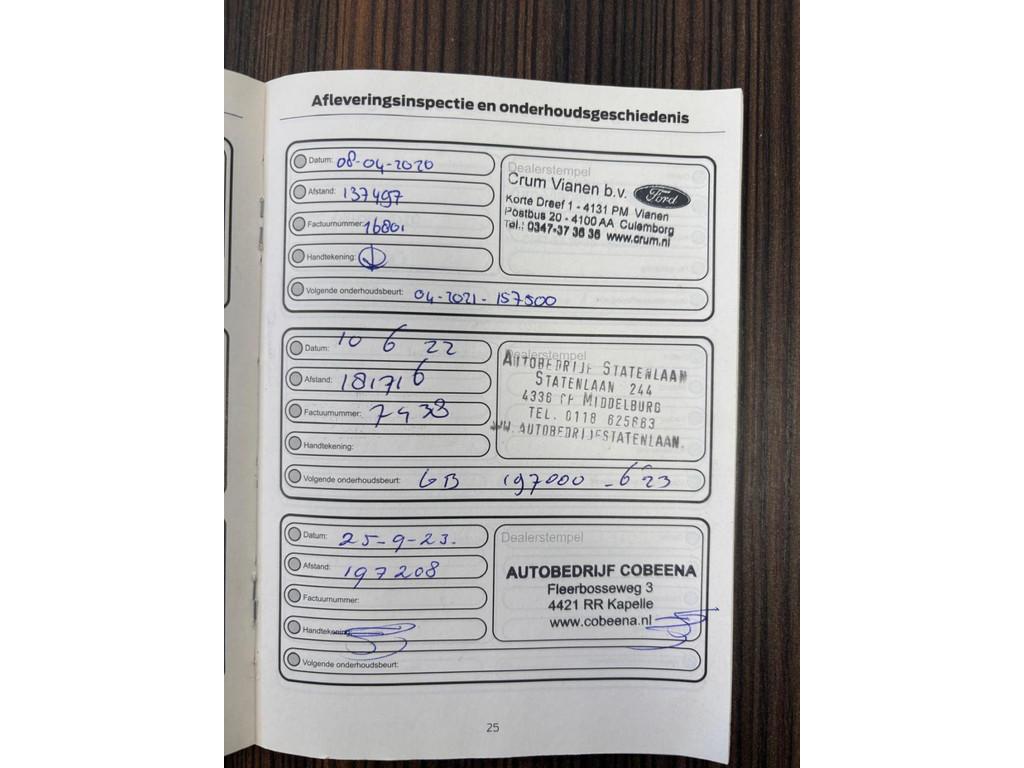 Afleveringsinspectie en onderhoudsgeschiedenis
Datum: 08-04-2020
Afstand: 137497
Factuurnummer: 16801
Handtekening:
Volgende onderhoudsbeurt: 04-2021-157500
Dealerstempel
Crum Vianen b.v.
Ford
Korte Dreef 1 - 4131 PM Vianen
Postbus 20 - 4100 AA Culemborg
Tel.: 0347-37 36 36 www.crum.nl
Datum: 10 6 22
Afstand: 181716
Factuurnummer: 7438
Handtekening:
Volgende onderhoudsbeurt: GB 197000 - 6 23
Dealerstempel
AUTOBEDRIJF STATENLAAN
STATENLAAN 244
4336 MIDDELBURG
TEL. 0118 625663
AUTOBEDRIJFSTATENLAAN.
Datum: 25-9-23.
Afstand: 197208
Factuurnummer:
Handtekening:
Volgende onderhoudsbeurt:
Dealerstempel
AUTOBEDRIJF COBEENA
Fleerbosseweg 3
4421 RR Kapelle
www.cobeena.nl
25